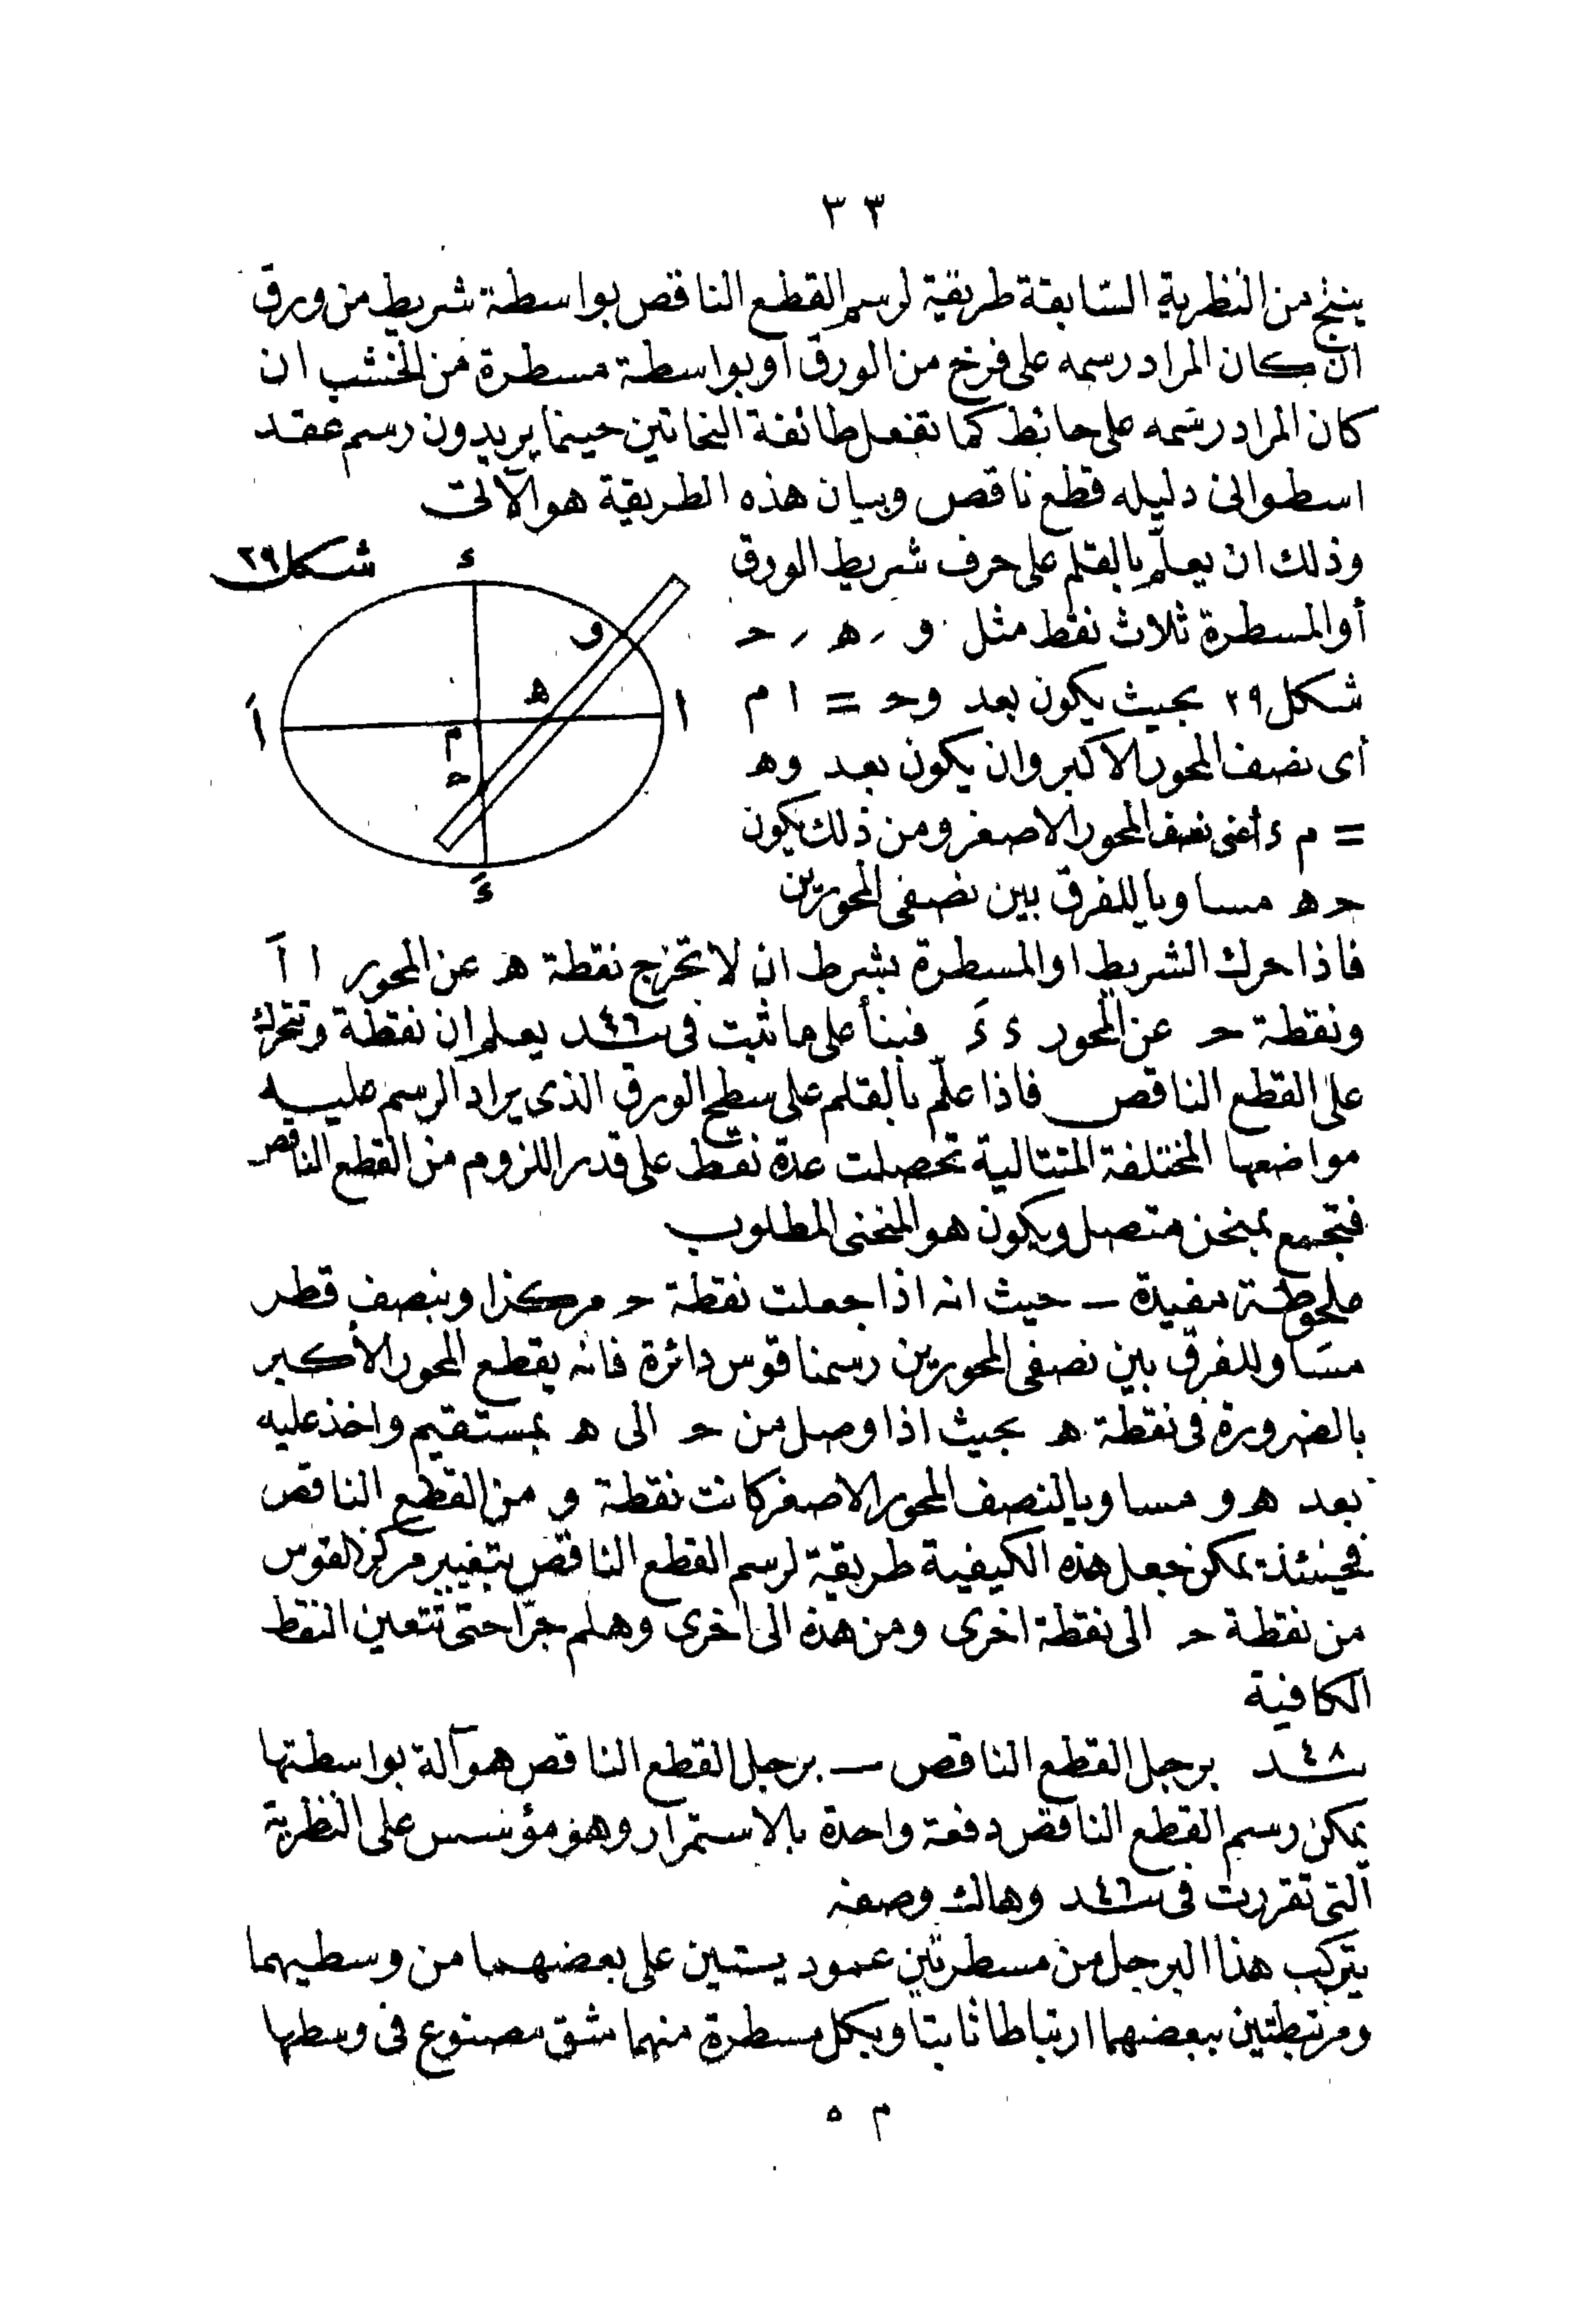 ٣٣
ينتج من النظرية السابقة طريقة لرسم القطع الناقص بواسطة شريط من ورق
ان كان المراد رسمه على فرخ من الورق او بواسطة مسطرة من الخشب ان
كان المراد رسمه على حائط كما تفعل طائفة النحاتين حينما يريدون رسم عقد
اسطوانى دليله قطع ناقص وبيان هذه الطريقة هو الآتى
وذلك ان يعلّم بالقلم على حرف شريط الورق
أو المسطرة ثلاث نقط مثل و ، ه ، ح
شكل ٢٩ بحيث يكون بعد وح = ا م
أى نصف المحور الاكبر وان يكون بعد وه
= م ء أعنى نصف المحور الاصغر ومن ذلك يكون
ح ه مساويا للفرق بين نصفى المحورين
شكل ٢٩
ء
و
ه
ا
اَ
م
ح
ءَ
فاذا حرك الشريط او المسطرة بشرط ان لا تخرج نقطة ه عن المحور ا اَ
ونقطة ح عن المحور ء ءَ فبنأ على ما ثبت فى ٤٦ـد يعلم ان نقطة و تتحرك
على القطع الناقص فاذا علّم بالقلم على سطح الورق الذى يراد الرسم عليه
مواضعها المختلفة المتتالية تحصلت عدة نقط على قدر اللزوم من القطع الناقص
فتجمع بمنحن متصل ويكون هو المنحنى المطلوب
ملحوظة مفيدة ـ حيث انه اذا جعلت نقطة ح مركزا وبنصف قطر
مساو للفرق بين نصفى المحورين رسمنا قوس دائرة فانه يقطع المحور الأكبر
بالضرورة فى نقطة ه بحيث اذا وصل من ح الى ه بمستقيم واخذ عليه
بعد ه و مساويا لنصف المحور الاصغر كانت نقطة و من القطع الناقص
فحينئذ يمكن جعل هذه الكيفية طريقة لرسم القطع الناقص بتغيير مركز القوس
من نقطة ح الى نقطة اخرى ومن هذه الى اخرى وهلم جرّا حتى تتعين النقط
الكافية
٤٨ـد برجل القطع الناقص ـ برجل القطع الناقص هو آلة بواسطتها
يمكن رسم القطع الناقص دفعة واحدة بالاستمرار وهو مؤسس على النظرية
التى تقررت فى ٤٦ـد وهاك وصفه
يتركب هذا البرجل من مسطرتين عموديستين على بعضهما من وسطيهما
ومرتبطتين ببعضهما ارتباطا ثابتا وبكل مسطرة منهما شق مصنوع فى وسطها
م ٥